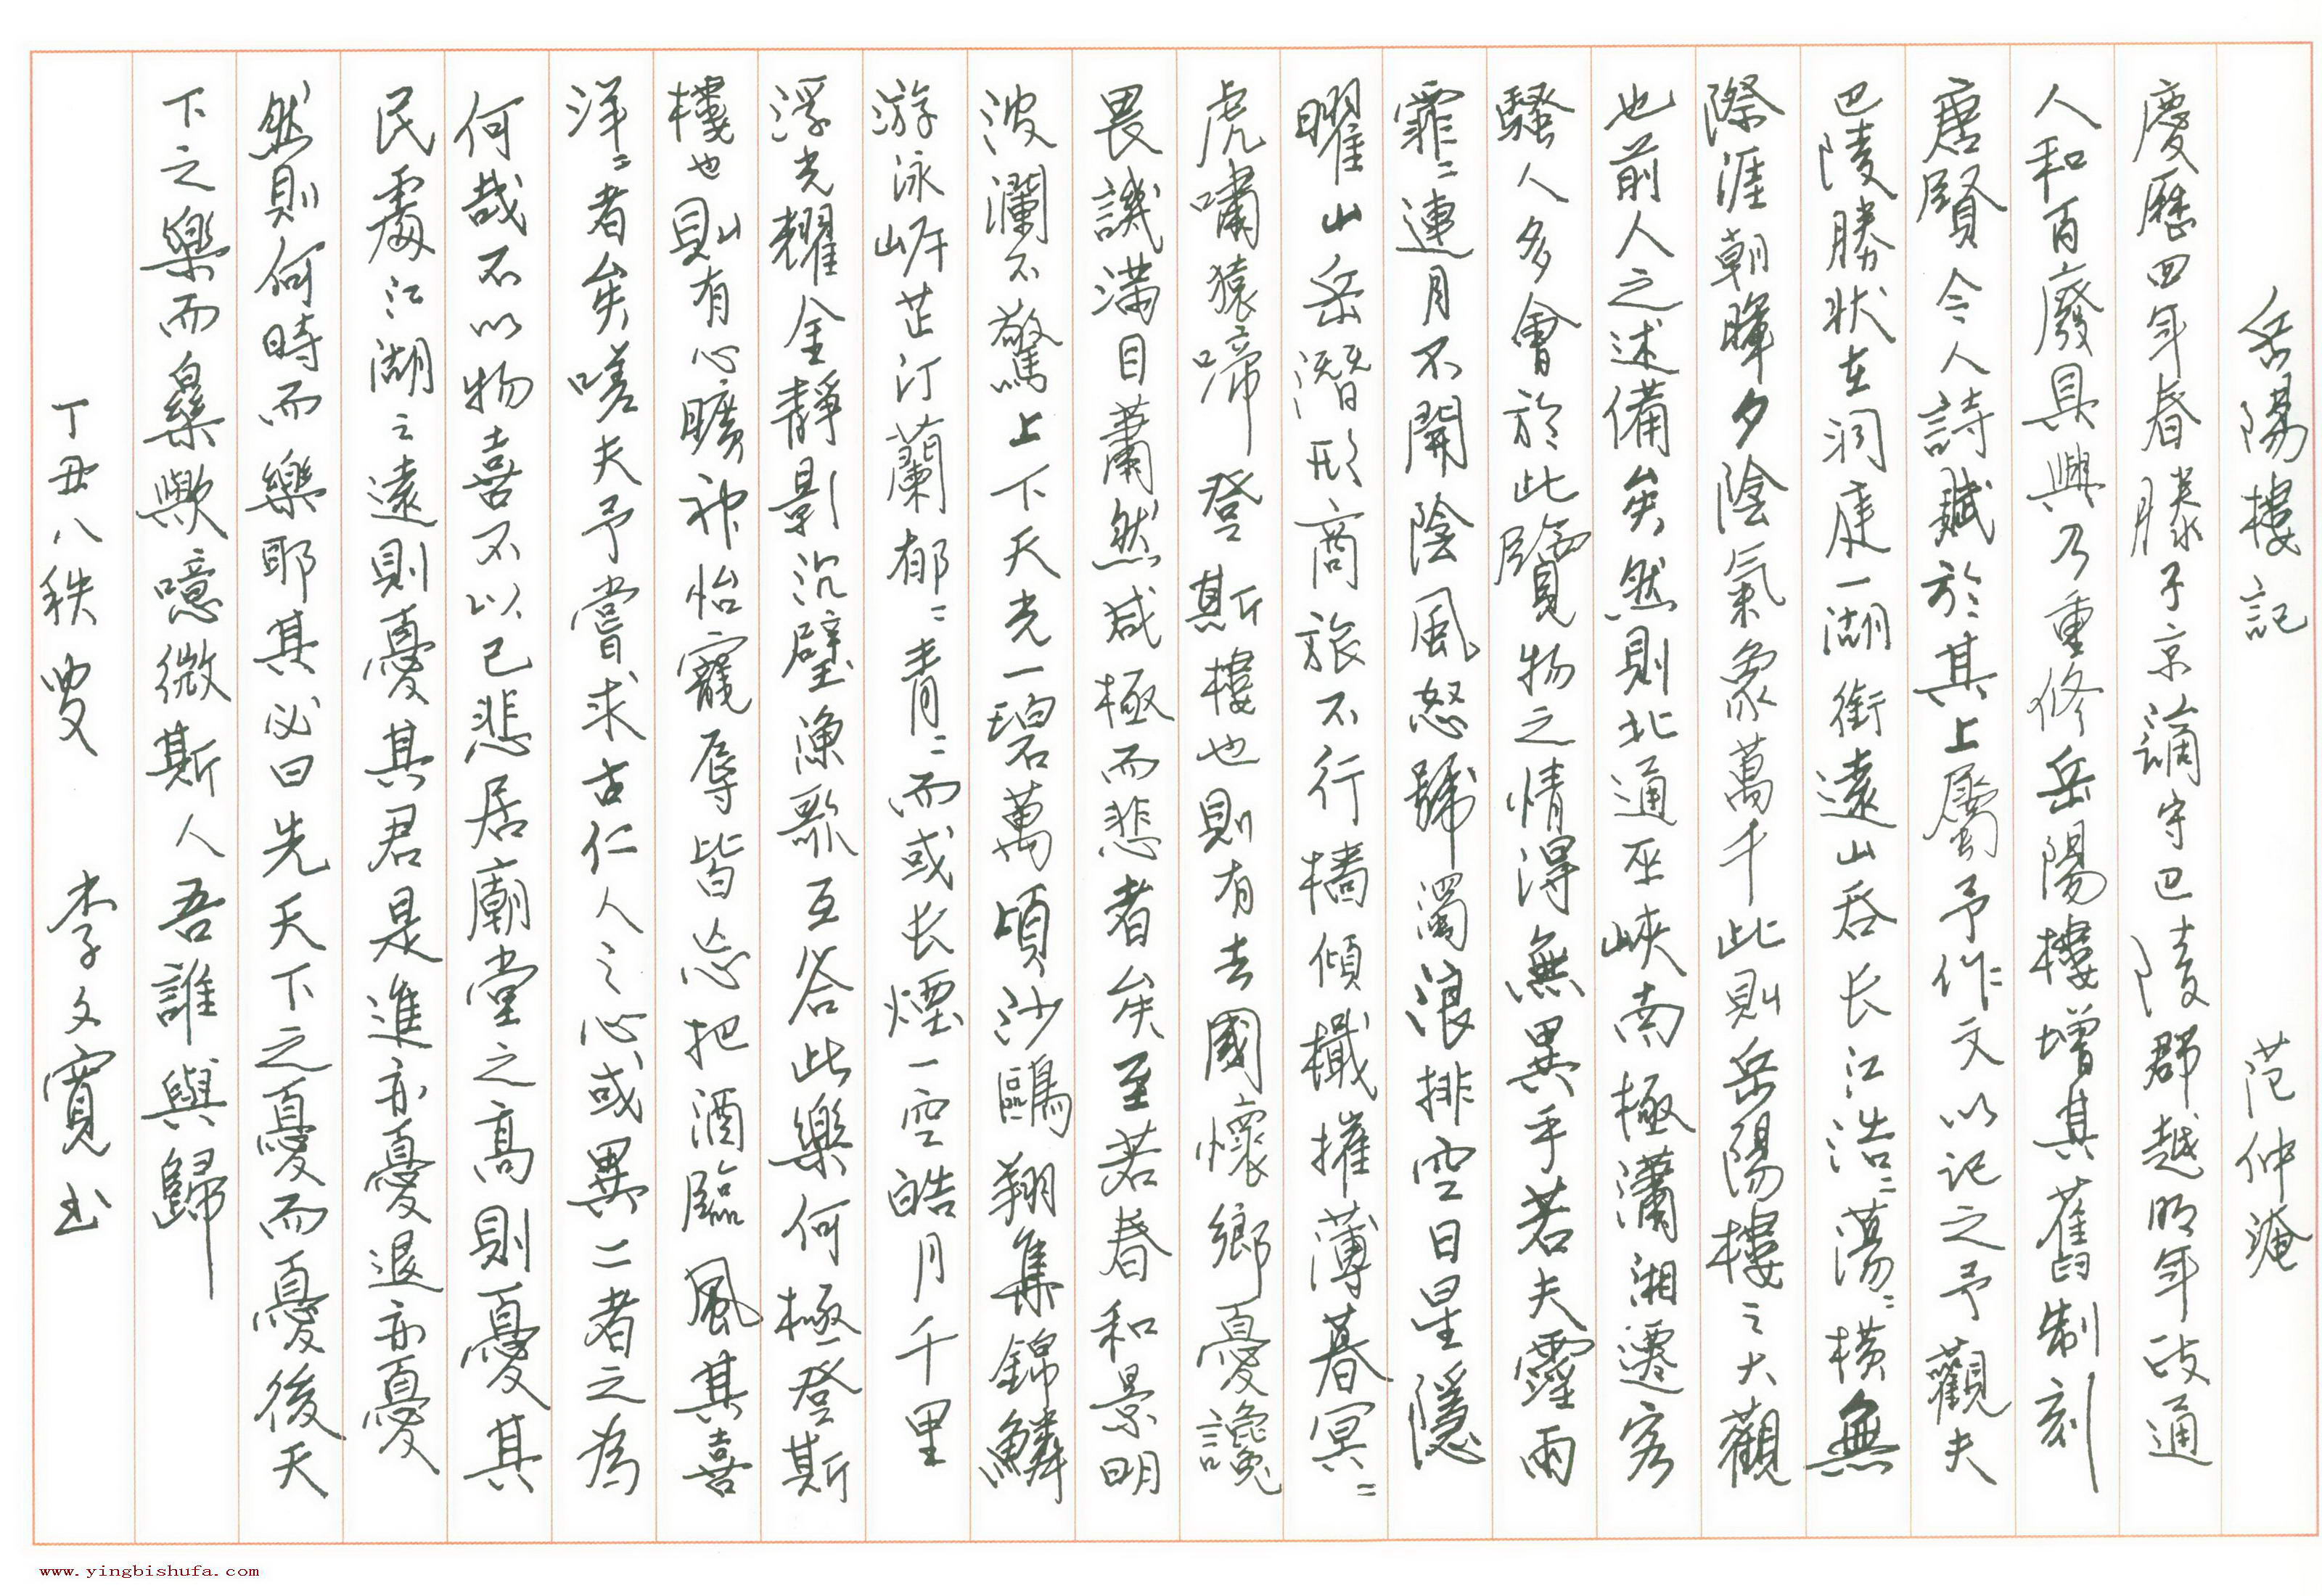 岳陽樓記 范仲淹
慶歷四年春滕子京謫守巴陵郡越明年政通
人和百廢具興乃重修岳陽樓增其舊制刻
唐賢今人詩賦於其上屬予作文以記之予觀夫
巴陵勝狀在洞庭一湖銜遠山吞长江浩〻蕩〻橫無
際涯朝暉夕陰氣象萬千此則岳陽樓之大觀
也前人之述備矣然則北通巫峽南極瀟湘遷客
騷人多會於此覽物之情得無異乎若夫霪雨
霏〻連月不開陰風怒號濁浪排空日星隱
曜山岳潛形商旅不行檣傾檝摧薄暮冥〻
虎嘯猿啼登斯樓也則有去國懷鄉憂讒
畏譏滿目蕭然感極而悲者矣至若春和景明
波瀾不驚上下天光一碧萬頃沙鷗翔集錦鱗
游泳岸芷汀蘭郁〻青〻而或长煙一空皓月千里
浮光耀金靜影沉璧漁歌互答此樂何極登斯
樓也則有心曠神怡寵辱皆忘把酒臨風其喜
洋〻者矣嗟夫予嘗求古仁人之心或異二者之為
何哉不以物喜不以己悲居廟堂之高則憂其
民處江湖之遠則憂其君是進亦憂退亦憂
然則何時而樂耶其必曰先天下之憂而憂後天
下之樂而樂歟噫微斯人吾誰與歸
丁丑八秩叟 李文寬书
www.yingbishufa.com